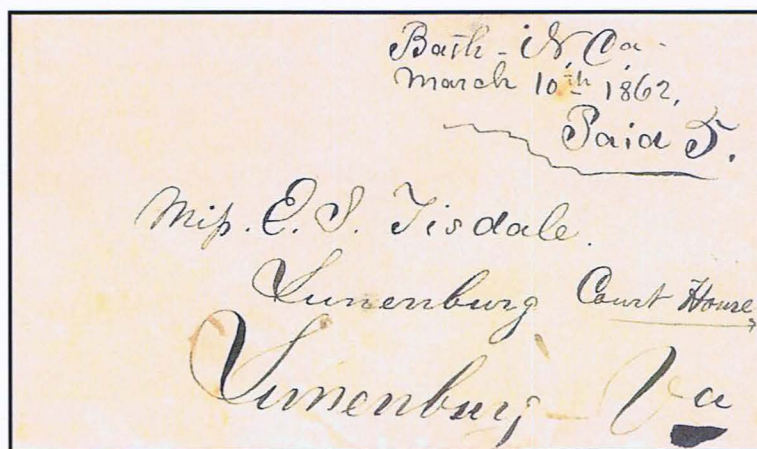 Bath - N, Ca -
March 10th 1862,
Paid 5.
Miss. E. S. Tisdale.
Lunenburg Court House,
Lunenburg - Va